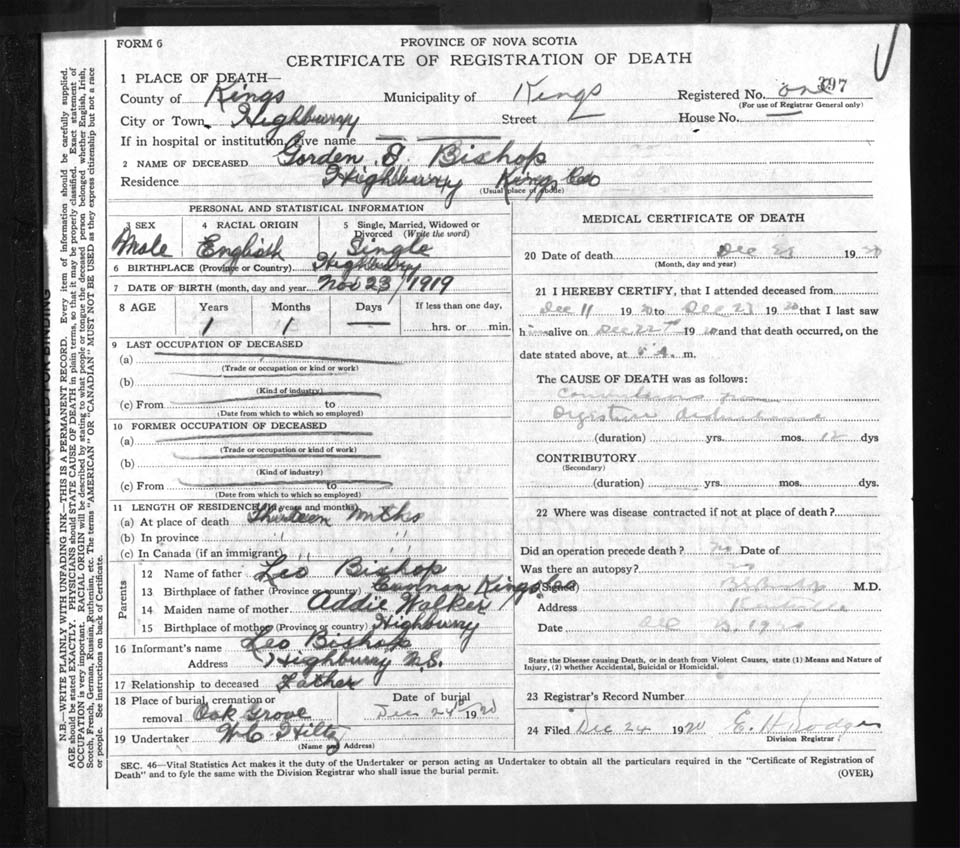 FORM 6
PROVINCE OF NOVA SCOTIA
CERTIFICATE OF REGISTRATION OF DEATH
1 PLACE OF DEATH—
County of Kings Municipality of Kings Registered No. one 397
(For use of Registrar General only)
City or Town Highburry Street House No.
If in hospital or institution, give name
2 NAME OF DECEASED Gorden Bishop
Residence Highburry Kings Co
(Usual place of abode)
PERSONAL AND STATISTICAL INFORMATION
3 SEX 4 RACIAL ORIGIN 5 Single, Married, Widowed or Divorced (Write the word)
Male English Single
6 BIRTHPLACE (Province or Country) Highburry
7 DATE OF BIRTH (month, day and year) Nov 23 / 1919
8 AGE Years Months Days If less than one day,
1 1 — hrs. or min.
9 LAST OCCUPATION OF DECEASED
(a)
(Trade or occupation or kind or work)
(b)
(Kind of industry)
(c) From to
(Date from which to which so employed)
10 FORMER OCCUPATION OF DECEASED
(a)
(Trade or occupation or kind of work)
(b)
(Kind of industry)
(c) From to
(Date from which to which so employed)
11 LENGTH OF RESIDENCE (in years and months)
(a) At place of death Thirteen mths
(b) In province " "
(c) In Canada (if an immigrant) " "
Parents
12 Name of father Leo Bishop
13 Birthplace of father (Province or country) Kings Co
14 Maiden name of mother Addie Walker
15 Birthplace of mother (Province or Country) Highburry
16 Informant's name Leo Bishop
Address Highburry N.S.
17 Relationship to deceased Father
18 Place of burial, cremation or removal Oak Grove
Date of burial
Dec 24th 1920
19 Undertaker W C Hiltz
(Name and Address)
MEDICAL CERTIFICATE OF DEATH
20 Date of death Dec 23 1920
(Month, day and year)
21 I HEREBY CERTIFY, that I attended deceased from
Dec 11 1920 to Dec 23 1920 that I last saw
him alive on Dec 22nd 1920 and that death occurred, on the
date stated above, at m.
The CAUSE OF DEATH was as follows:
Convulsions from
Digestive disturbance
(duration) yrs. mos. 12 dys
CONTRIBUTORY
(Secondary)
(duration) yrs. mos. dys.
22 Where was disease contracted if not at place of death?
Did an operation precede death? no Date of
Was there an autopsy? no
(Signed) M.D.
Address Kentville
Date Dec 1920
State the Disease causing Death, or in death from Violent Causes, state (1) Means and Nature of
Injury, (2) whether Accidental, Suicidal or Homicidal.
23 Registrar's Record Number
24 Filed Dec 24 1920 E. H. Dodge
Division Registrar
SEC. 46—Vital Statistics Act makes it the duty of the Undertaker or person acting as Undertaker to obtain all the particulars required in the "Certificate of Registration of
Death" and to fyle the same with the Division Registrar who shall issue the burial permit. (OVER)
N.B.—WRITE PLAINLY WITH UNFADING INK—THIS IS A PERMANENT RECORD. Every item of information should be carefully supplied.
AGE should be stated EXACTLY. PHYSICIANS should STATE CAUSE OF DEATH in plain terms, so that it may be properly classified. Exact statement of
OCCUPATION is very important. RACIAL ORIGIN will be described by stating to what people or tongue the deceased person belonged whether English, Irish,
Scotch, French, German, Russian, Ruthenian, etc. The terms "AMERICAN" OR "CANADIAN" MUST NOT BE USED as they express citizenship but not a race
or people. See instructions on back of Certificate.